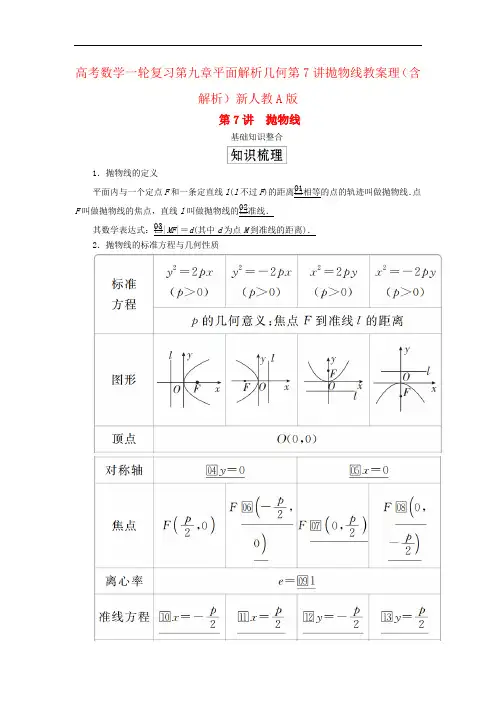 高考数学一轮复习第九章平面解析几何第7讲抛物线教案理（含
解析）新人教A版
第7讲 抛物线
基础知识整合
知识梳理
1．抛物线的定义
平面内与一个定点F和一条定直线l(l不过F)的距离01相等的点的轨迹叫做抛物线.点
F叫做抛物线的焦点，直线l叫做抛物线的02准线.
其数学表达式：03|MF|＝d(其中d为点M到准线的距离).
2．抛物线的标准方程与几何性质
标准方程 y²＝2px (p>0) y²＝－2px (p>0) x²＝2py (p>0) x²＝－2py (p>0)
p的几何意义：焦点F到准线l的距离
图形 l y O F x y l F O x y F O x l y O l F x
顶点 O(0,0)
对称轴 04 y＝0 05 x＝0
焦点 F(p/2,0) F 06(－p/2,0) F 07(0,p/2) F 08(0,－p/2)
离心率 e＝09 1
准线方程 10 x＝－p/2 11 x＝p/2 12 y＝－p/2 13 y＝p/2